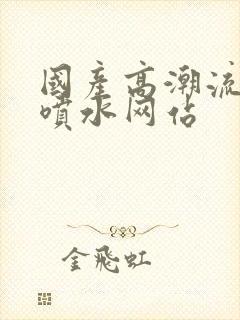 國産高潮流
噴水网佔
金飛虹